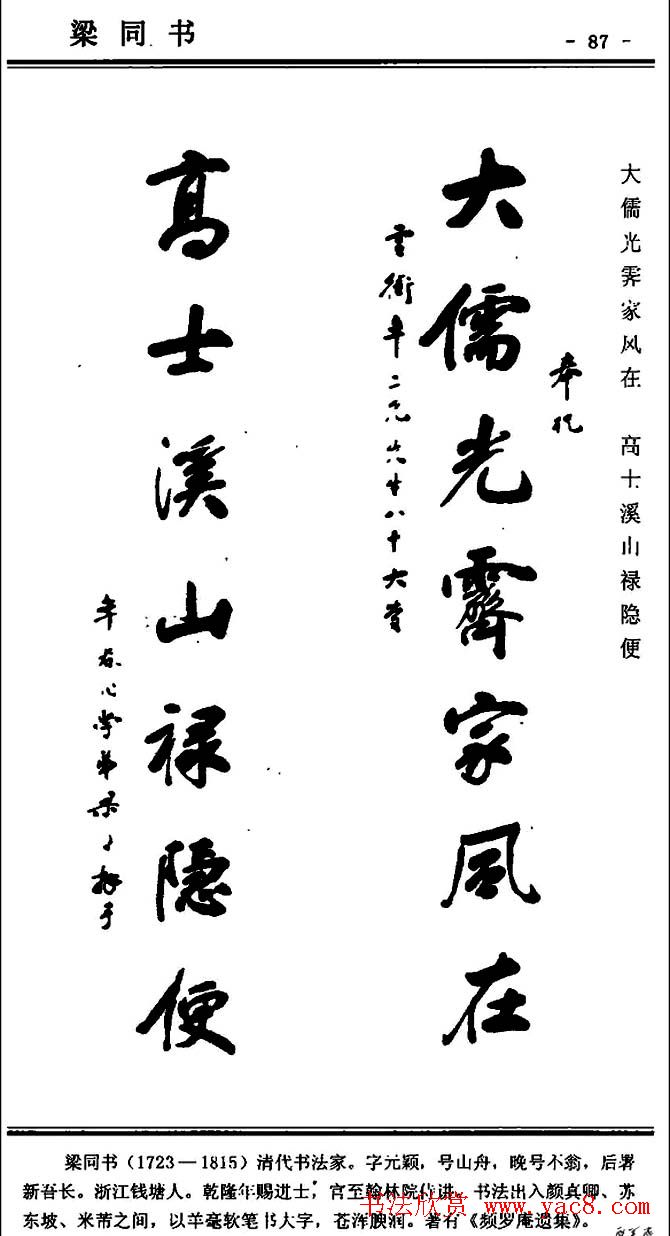 梁同书
- 87 -
大儒光霁家风在 高士溪山禄隐便
奉祝
大儒光霽家風在
八十大壽
高士溪山禄隱便
梁同书（1723—1815）清代书法家。字元颖，号山舟，晚号不翁，后署
新吾长。浙江钱塘人。乾隆年赐进士，官至翰林院侍讲。书法出入颜真卿、苏
东坡、米芾之间，以羊毫软笔书大字，苍浑腴润。著有《频罗庵遗集》。
书法欣赏
www.yac8.com